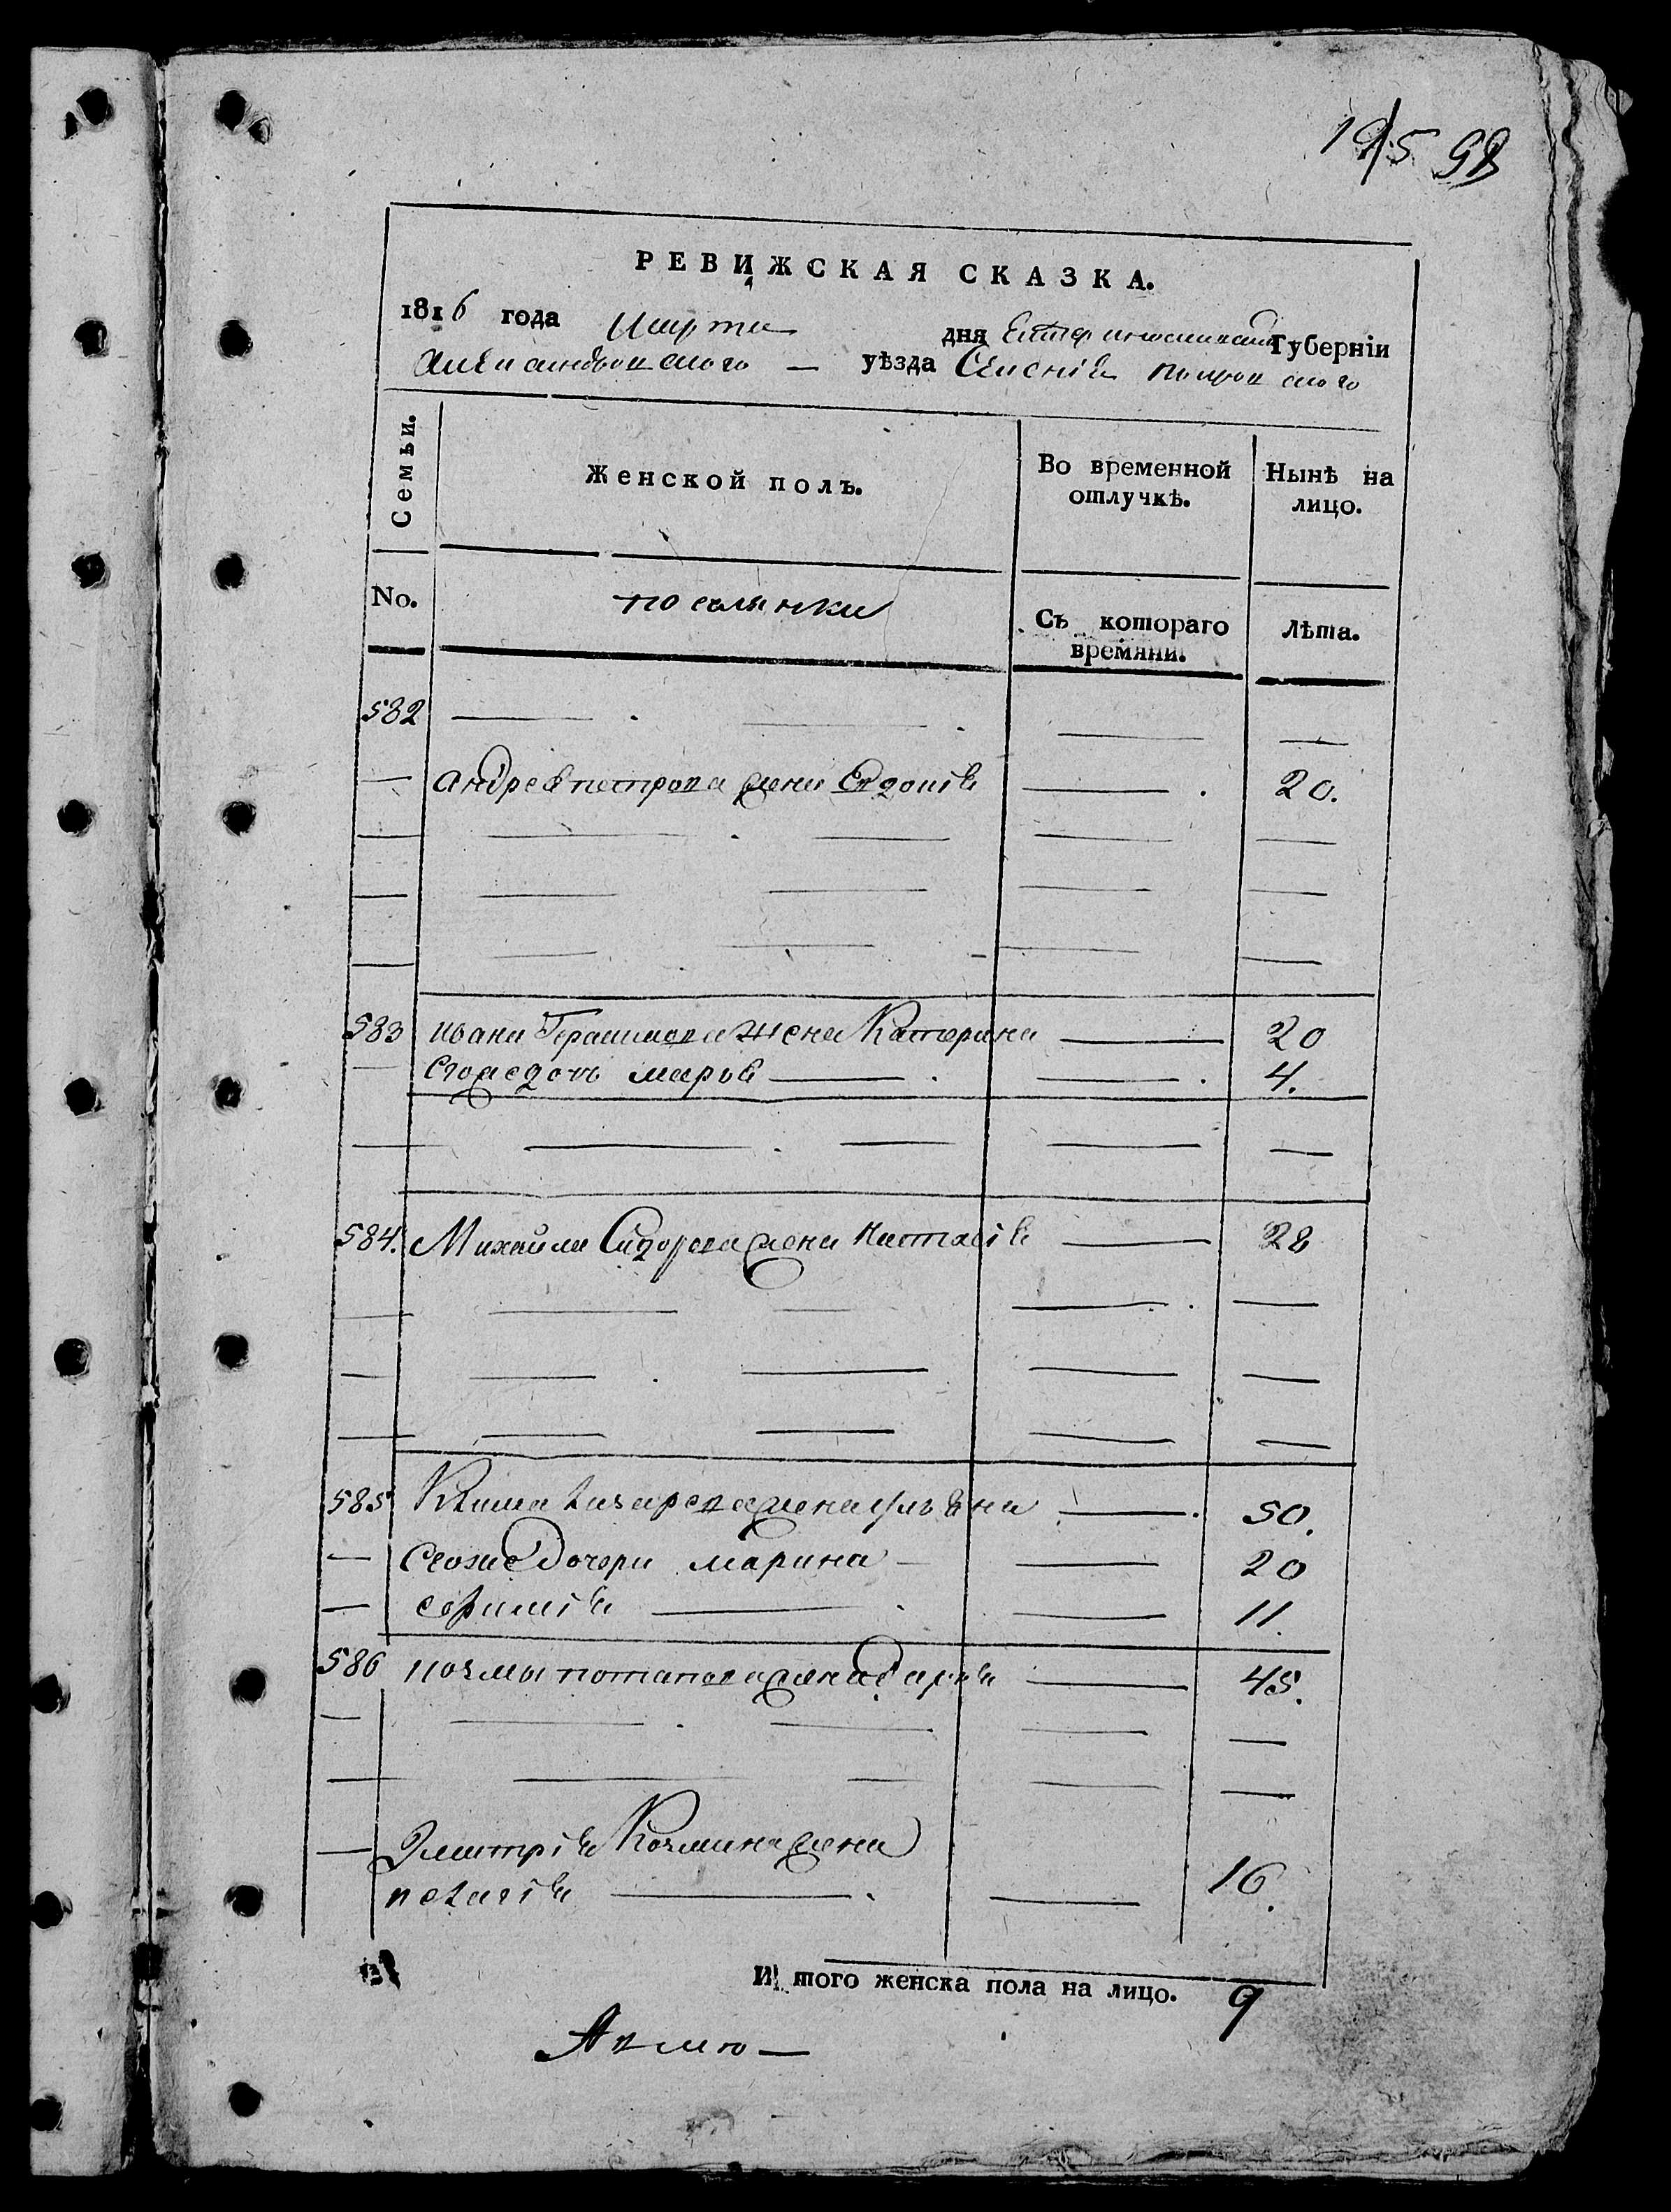 РЕВИЖСКАЯ СКАЗКА.
1816 года Марта дня Екатеринославской Губерніи
Александровского — уѣзда Селенія Покровского
Семьи. Женской полъ. Во временной отлучкѣ. Нынѣ на лицо.
No. поселянки Съ котораго времяни. Лѣта.
582
Андрея петрова жена Евдокія 20.
583 ивана Герасимова жена Катерина 20
Егоже дочь марья 4.
584. Михайла Сидорова жена Настасія 28
585 Клима Лазарева жена ульяна 50.
Егоже Дочери марина 20
ефимія 11.
586 козмы потапова жена дарья 45.
Дмитрія Козмина жена
пелагія 16.
И того женска пола на лицо. 9